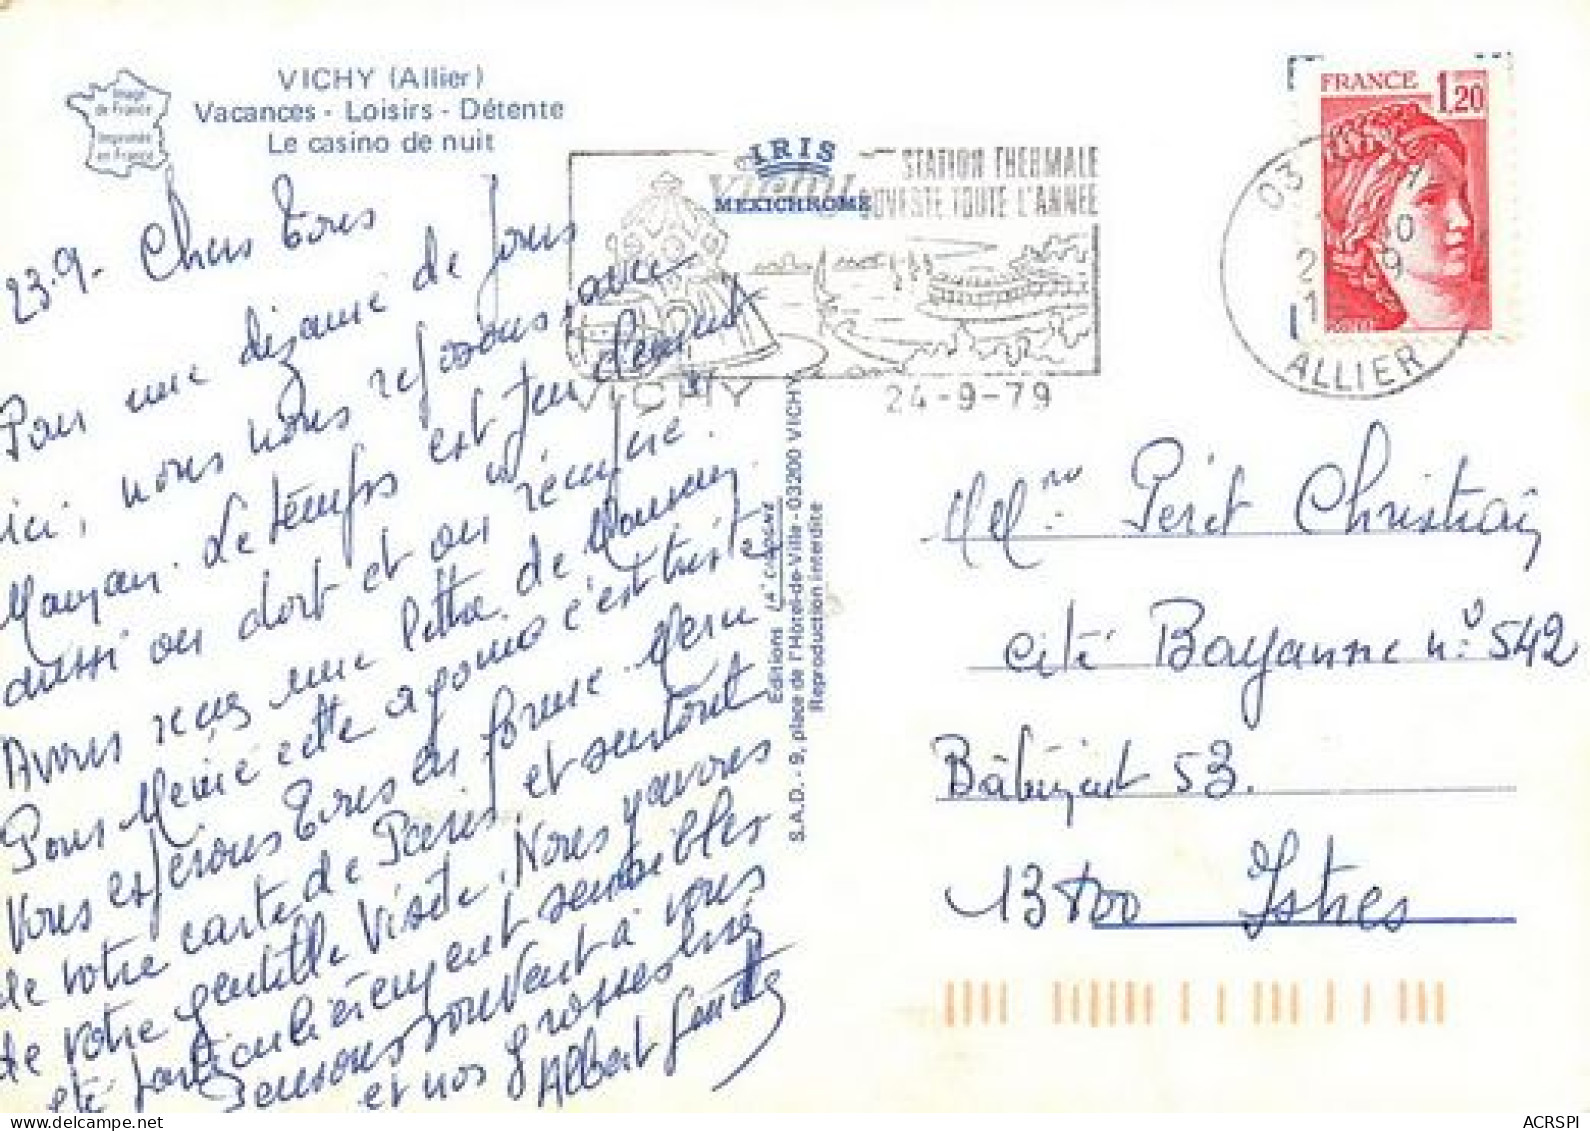 Image
de France
Imprimée
en France
VICHY (Allier)
Vacances - Loisirs - Détente
Le casino de nuit
IRIS
MEXICHROME
VICHY
STATION THERMALE
OUVERTE TOUTE L'ANNEE
VICHY
24-9-79
03
ALLIER
FRANCE 1,20
23.9. Chers Tous
Pour une dizaine de jours
ici, nous nous reposons avec
Maman. Le temps est
aussi on dort et on
Avons reçu une lettre de
Pour cette c'est triste
Vous espérons Tous en forme. Merci
de votre carte de Paris et surtout
de votre gentille visite. Nous y avons
été particulièrement sensibles
Pensons souvent à vous
et nos grosses
Albert
Editions LA CIGOGNE
S.A.D. - 9, place de l'Hôtel-de-Ville - 03200 VICHY
Reproduction interdite
Christian
cité Bayanne n° 542
Bâtiment 53.
13800 Istres
ACRSPI